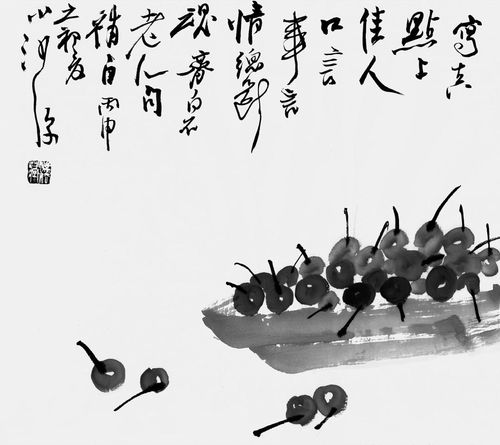 點上
佳人
口言
事言
情總斷
魂齊白石
老人句
丙申
之初夏